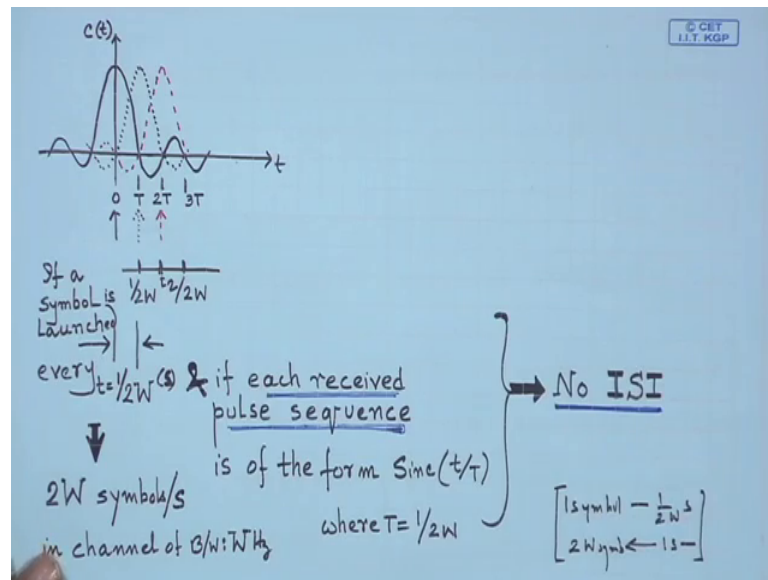 C(t)
© CET
I.I.T. KGP
t
0 T 2T 3T
1/2W t 2/2W
If a
symbol is
Launched
every t=1/2W (s) & if each received
pulse sequence
is of the form Sinc(t/T)
where T=1/2W
No ISI
2W symbols/s
in channel of B/W: W Hz
[1 symbol — 1/2W s
2W sym ← 1s —]